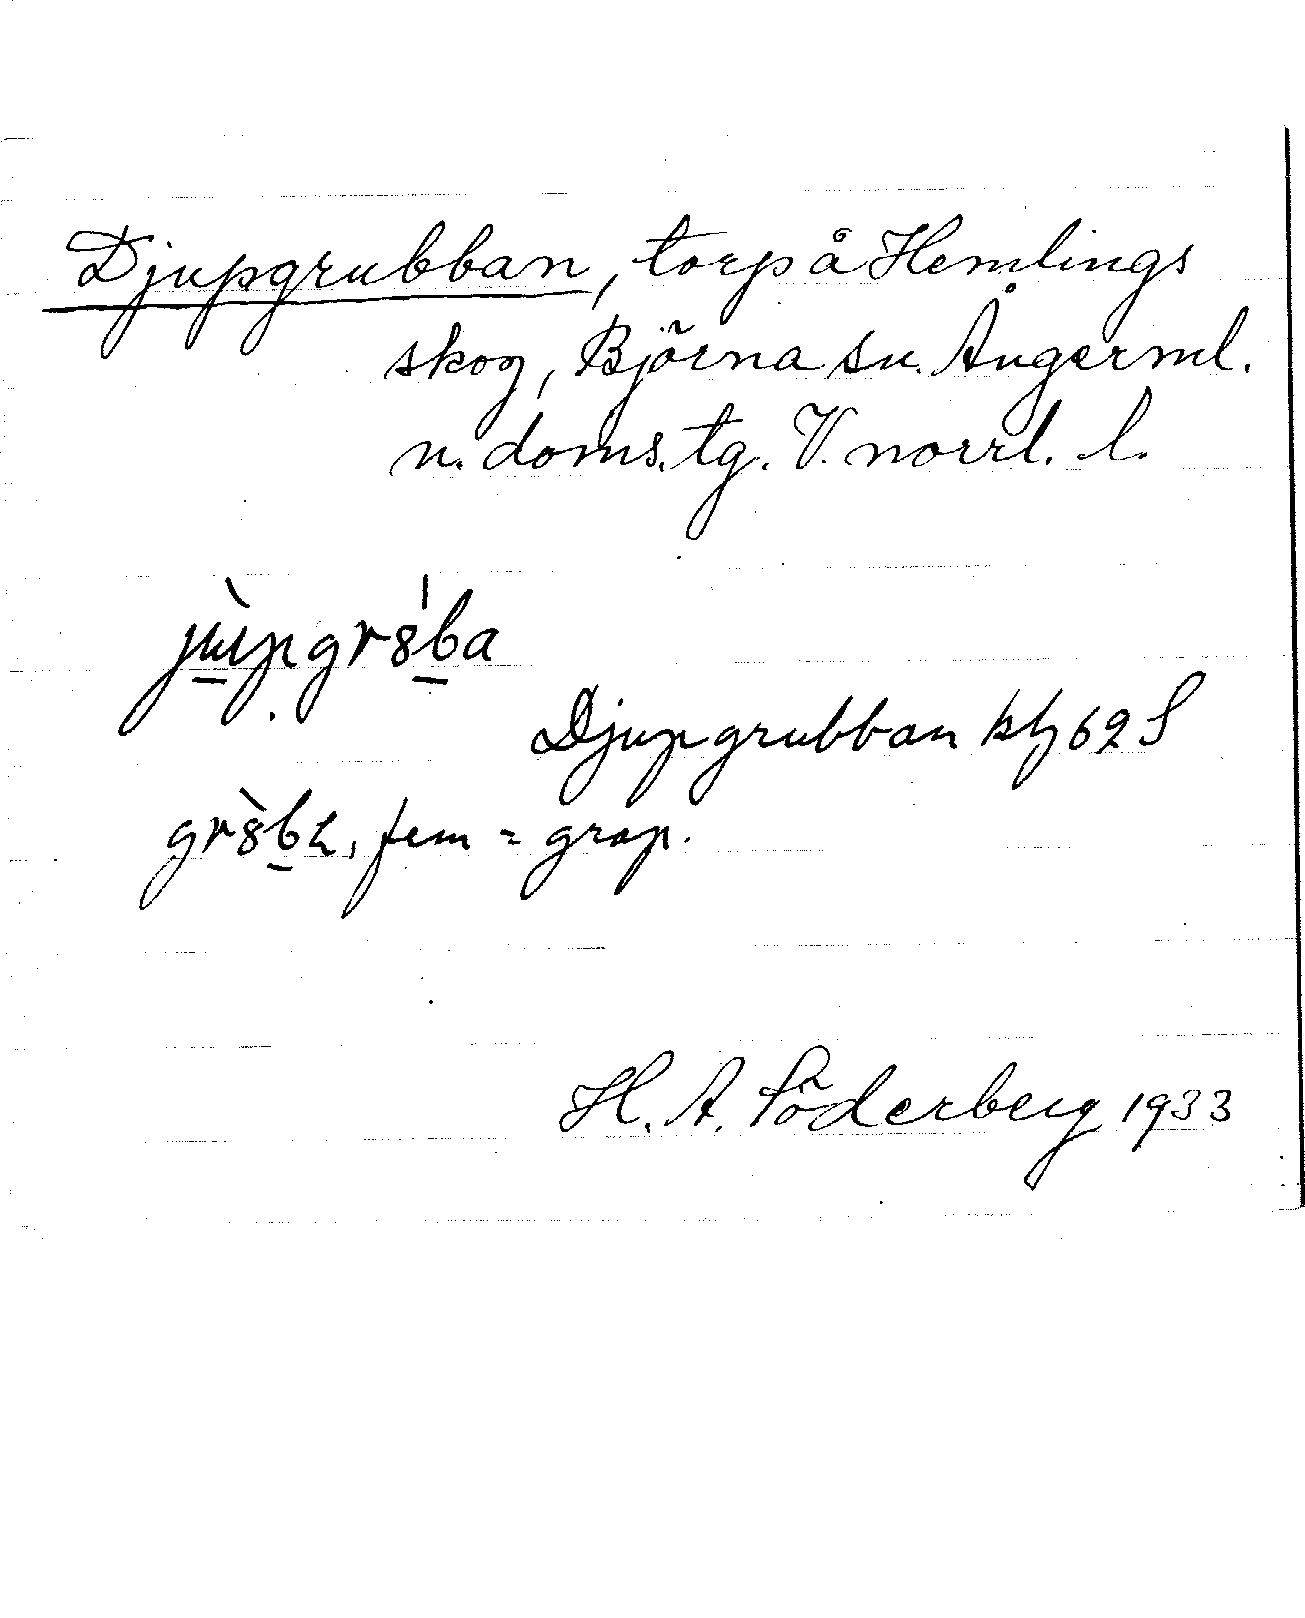 Djupgrubban, torp å Hemlings
skog, Björna sn. Ångerml.
n. doms. tg. V. norrl. l.
jùpgr8́ba
Djupgrubban 62 S
fem = grop.
H. A. Söderberg 1933